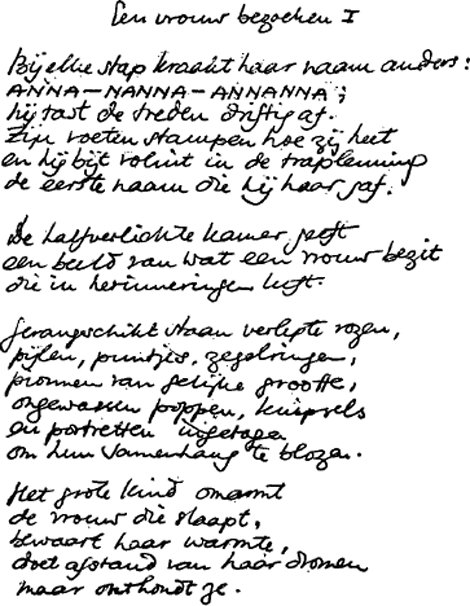 Een vrouw bezoeken I
Bij elke stap kraakt haar naam anders:
ANNA-NANNA-ANNANNA;
hij tast de treden driftig af.
Zijn voeten stampen hoe zij heet
en hij bijt voluit in de trapleuning
de eerste naam die hij haar gaf.
De halfverlichte kamer geeft
een beeld van wat een vrouw bezit
die in herinneringen leeft.
Gerangschikt staan verlepte rozen,
pijlen, puntjes, zegelringen,
van gelijke grootte,
ongewassen poppen, kuipsels
en portretten
om hun samenhang te blozen.
Het grote kind omarmt
de vrouw die slaapt,
bewaart haar warmte,
doet afstand van haar dromen
maar onthoudt ze.